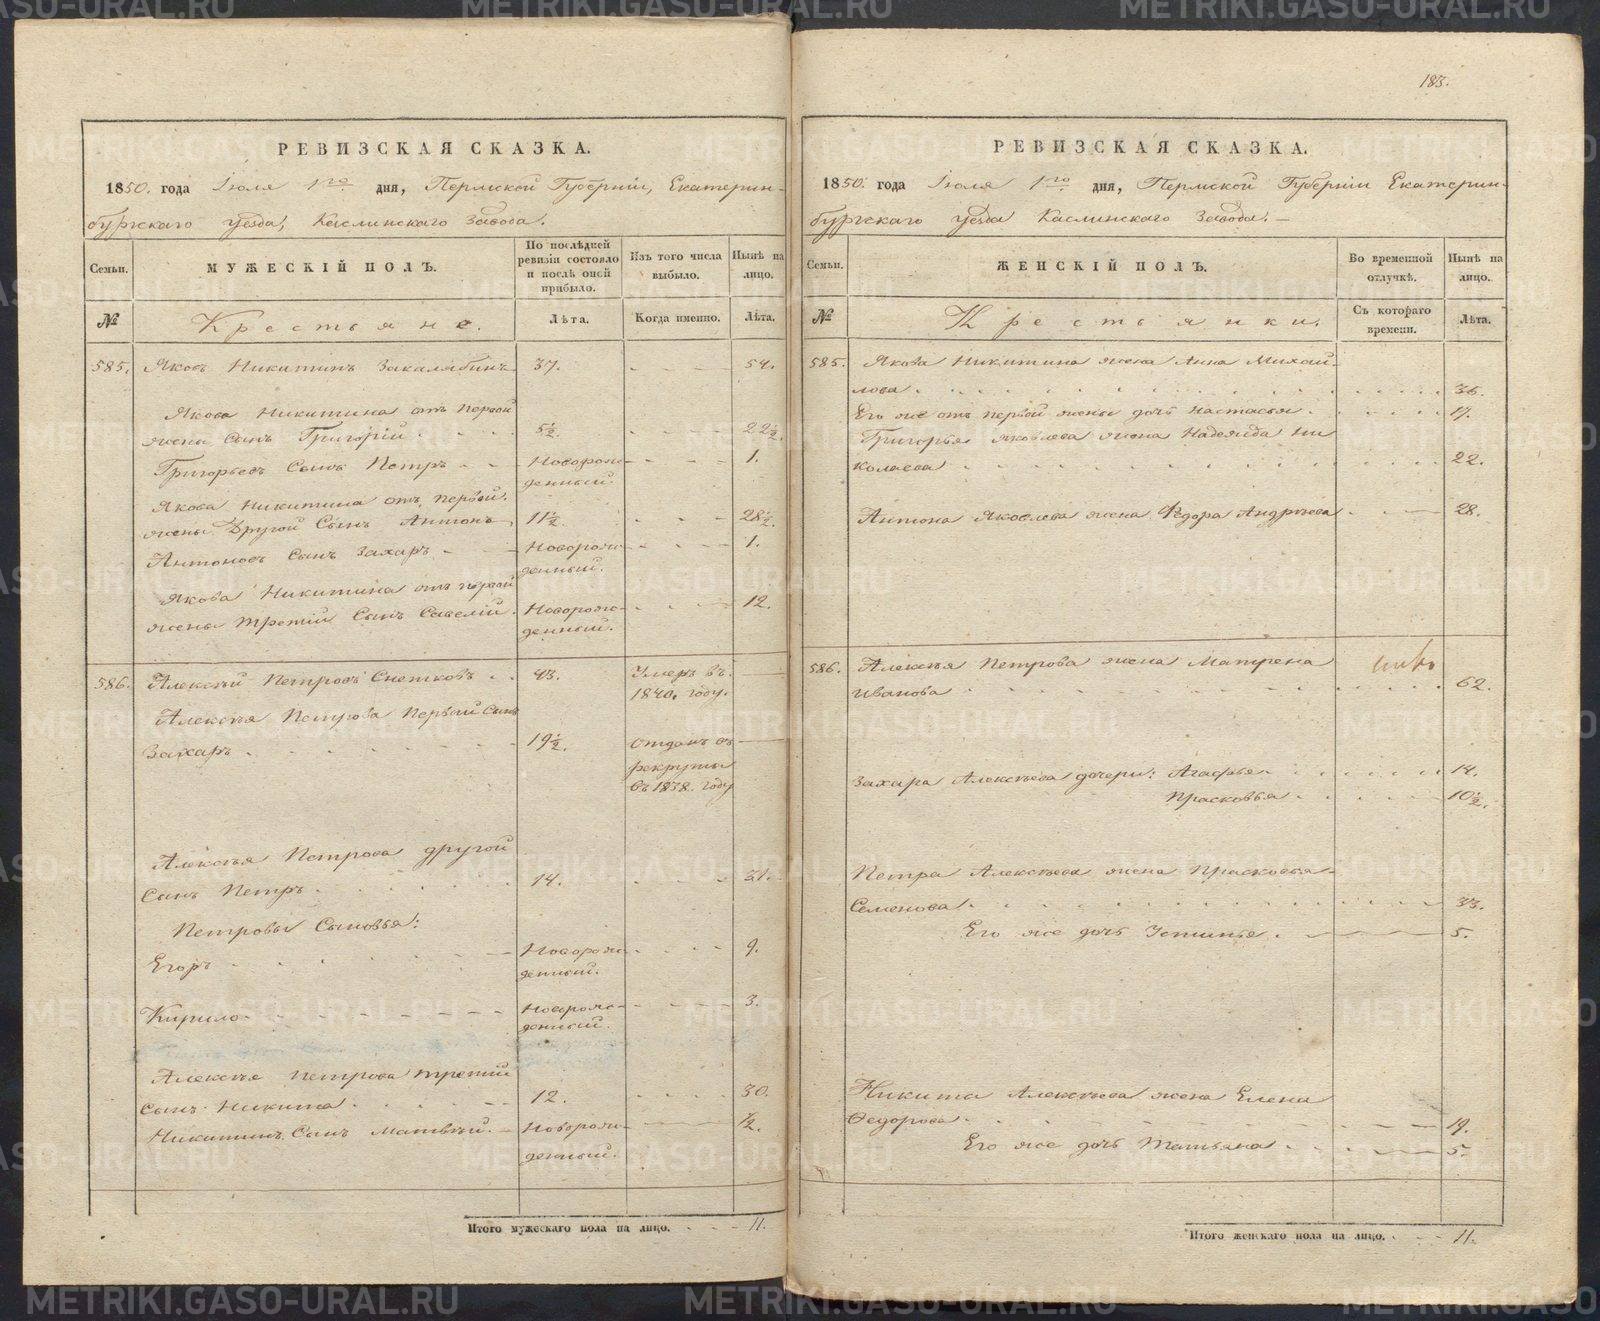 РЕВИЗСКАЯ СКАЗКА.
1850. года Іюля 1го дня, Пермской Губерніи, Екатерин-
бургскаго уезда, Каслинскаго Завода.
Семьи.
МУЖЕСКІЙ ПОЛЪ.
По послѣдней
ревизіи состояло
и послѣ оной
прибыло.
Изъ того числа
выбыло.
Нынѣ на
лицо.
№
Крестьяне.
Лѣта.
Когда именно.
Лѣта.
585. Яковъ Никитинъ Закалябинъ 37. 54.
Якова Никитина отъ первой
жены сынъ Григорій 5½. 22½.
Григорьевъ Сынъ Петръ Новорож- 1.
денный.
Якова Никитина отъ первой
жены Другой Сынъ Антонъ 11½. 28½.
Антоновъ Сынъ Захаръ Новорож- 1.
денный.
Якова Никитина отъ первой
жены третій Сынъ Савелій. Новорож- 12.
денный.
586. Алексѣй Петровъ Снетковъ 43. Умеръ въ
1840. году.
Алексѣя Петрова Первый сынъ
Захаръ 19½. отданъ въ
рекруты
въ 1838. году
Алексѣя Петрова другой
Сынъ Петръ 14. 31.
Петровы Сыновья:
Егоръ Новорож- 9.
денный.
Кирило Новорож- 3.
денный.
Алексѣя Петрова третій
сынъ Никита 12. 30.
Никитинъ Сынъ Матвѣй. Новорож- ½.
денный.
Итого мужескаго пола на лицо. 11.
183.
РЕВИЗСКАЯ СКАЗКА.
1850. года Іюля 1го дня, Пермской Губерніи Екатерин-
бургскаго уезда Каслинскаго Завода.
Семьи.
ЖЕНСКІЙ ПОЛЪ.
Во временной
отлучкѣ.
Нынѣ на
лицо.
№
Крестьянки.
Съ котораго
времени.
Лѣта.
585. Якова Никитина жена Анна Михай-
лова 36.
Его же отъ первой жены дочь Настасья 17.
Григорья Яковлева жена Надежда Ни
колаева 22.
Антона Яковлева жена Федора Андрѣева 28.
586. Алексѣя Петрова жена Матрена
Иванова 62.
Захара Алексѣева дочери: Агафья 14.
Прасковья 10½.
Петра Алексѣева жена Прасковья
Семенова 33.
Его же дочь Устинья 5.
Никиты Алексѣева жена Елена
Федорова 19.
Его же дочь Татьяна 5.
Итого женскаго пола на лицо. 11.
METRIKI.GASO-URAL.RU